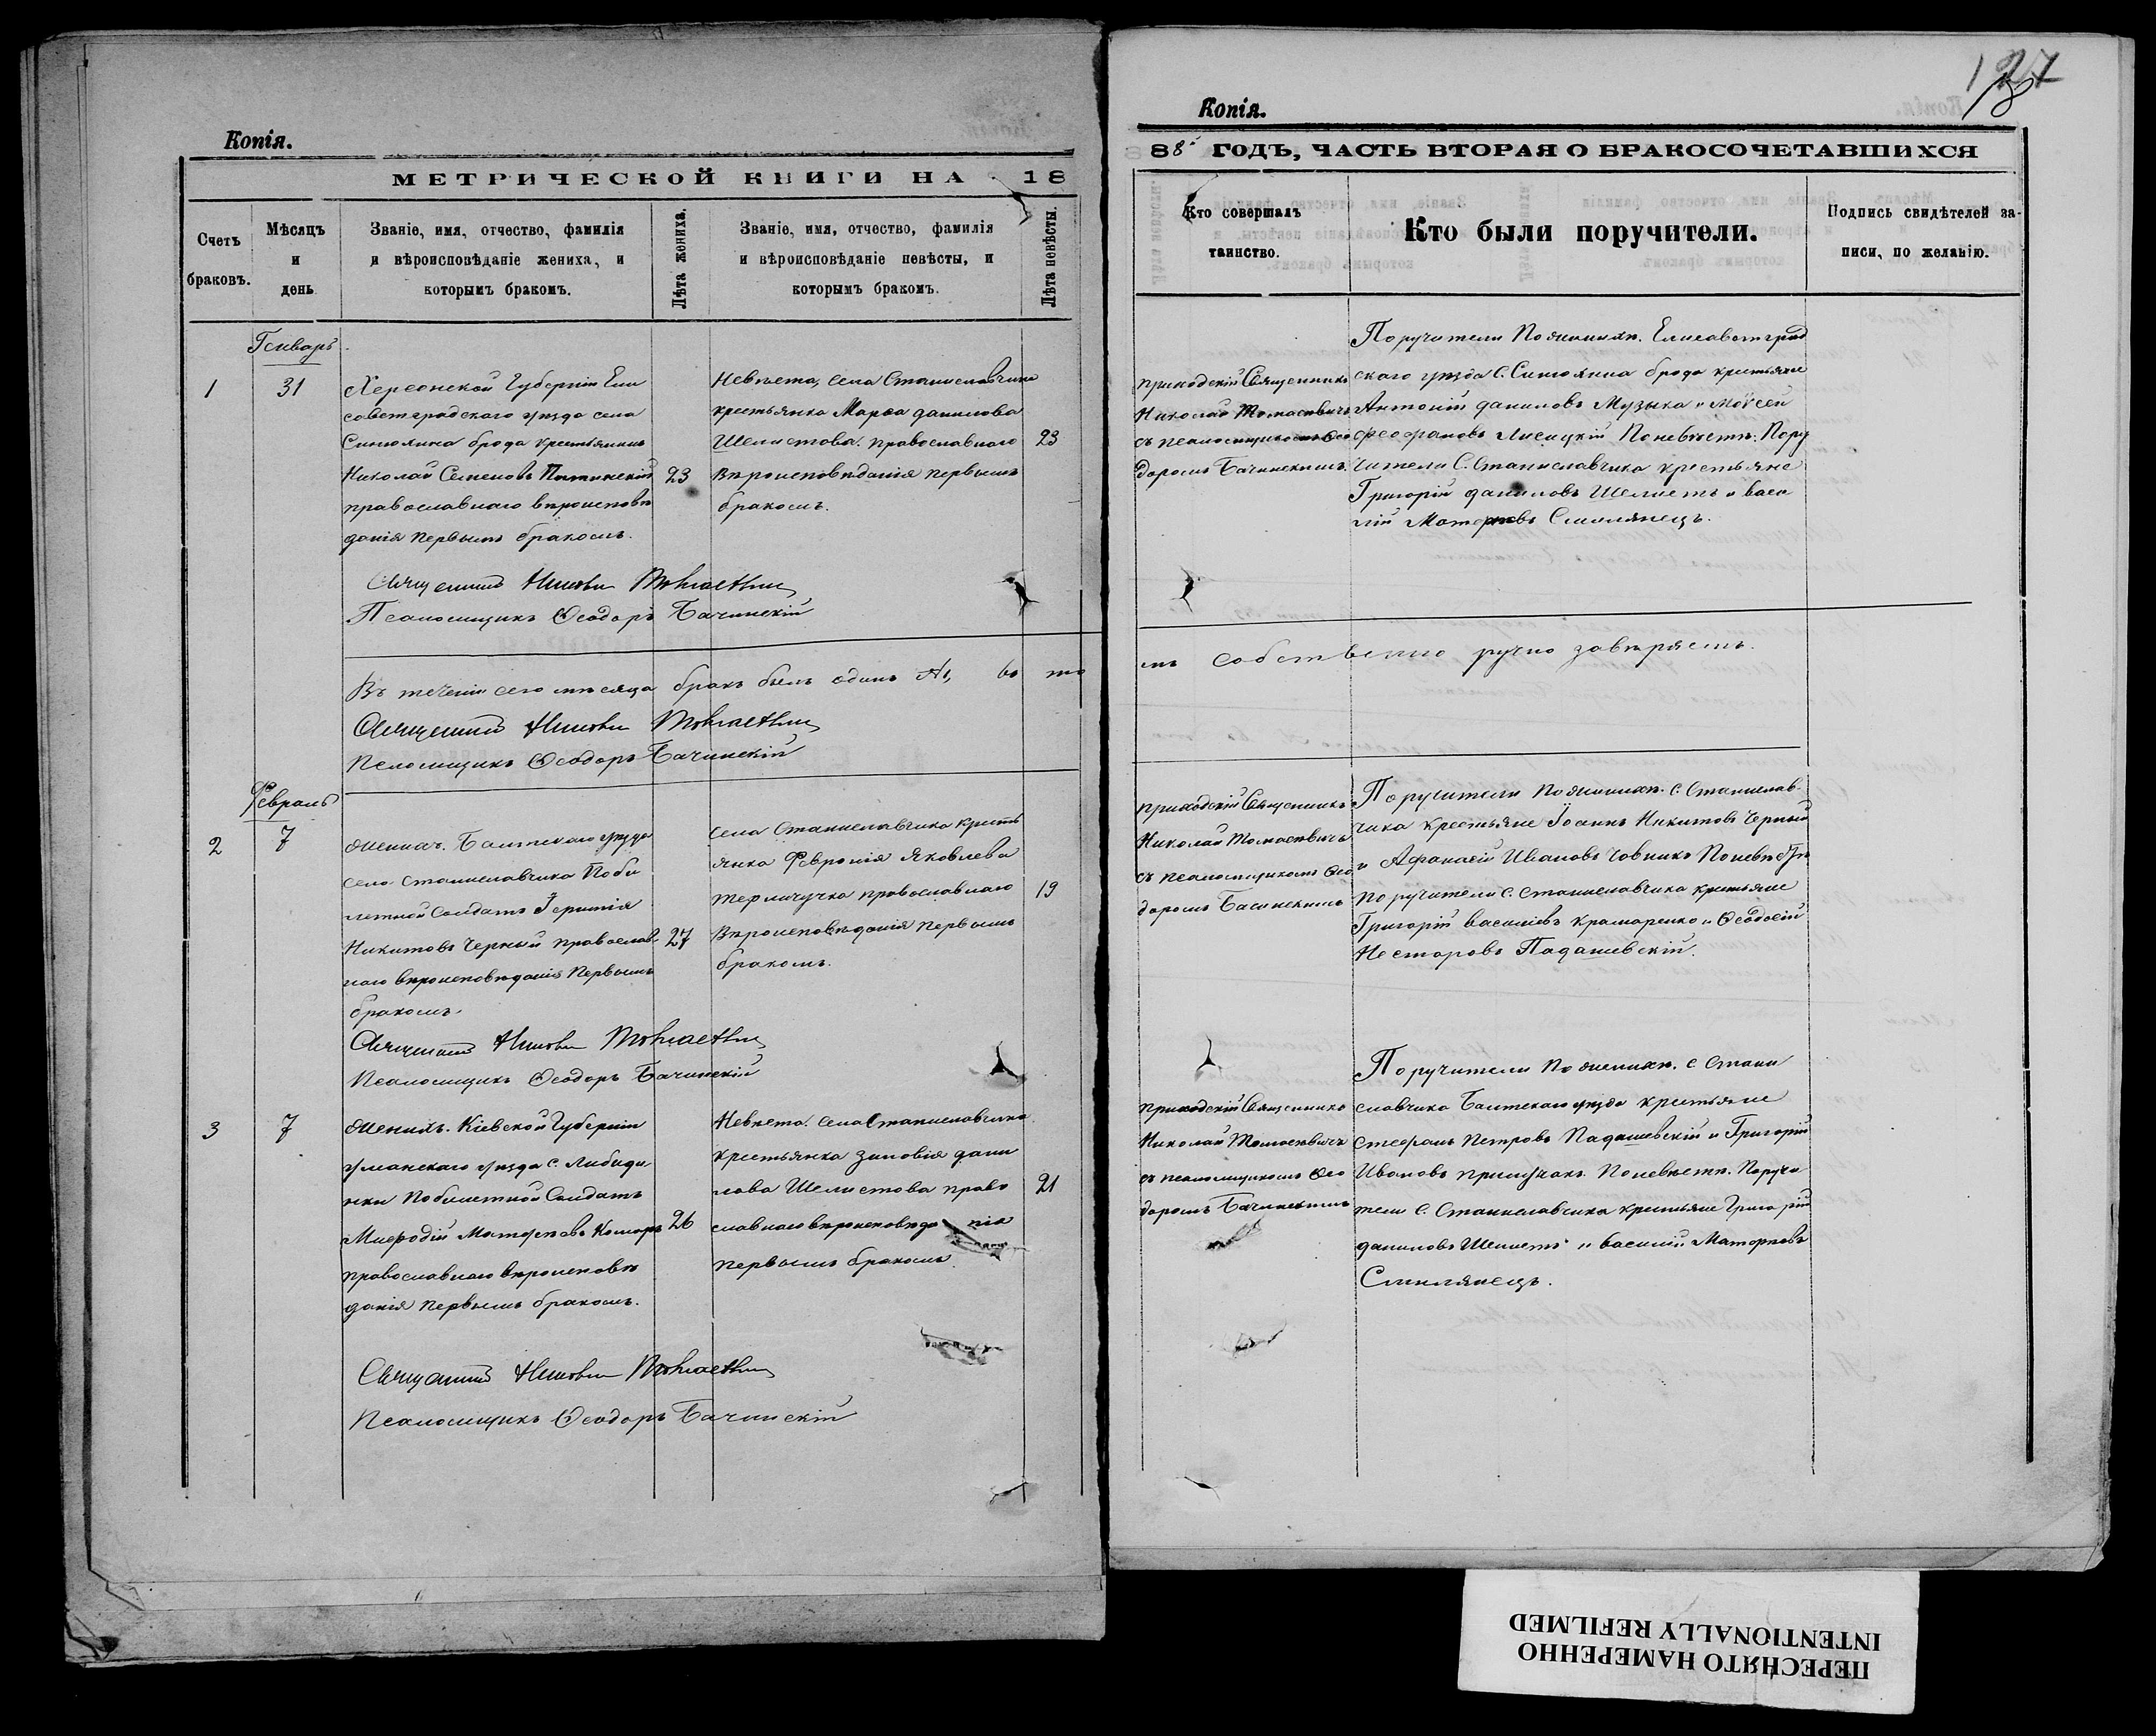 Копія.
МЕТРИЧЕСКОЙ КНИГИ НА 18
Счетъ браковъ.
Мѣсяцъ и день
Званіе, имя, отчество, фамилія и вѣроисповѣданіе жениха, и которымъ бракомъ.
Лѣта жениха.
Званіе, имя, отчество, фамилія и вѣроисповѣданіе невѣсты, и которымъ бракомъ.
Лѣта невѣсты.
Генварь
1
31
Херсонской Губерніи Ели
саветградскаго уѣзда села
Синюхина брода крестьянинъ
Николай Семеновъ
православнаго вѣроисповѣ
данія первымъ бракомъ.
23
Невѣста, села Станиславчика
крестьянка Марѳа данилова
Шелистова. православнаго
вѣроисповѣданія первымъ
бракомъ.
23
Священникъ Николай
Псаломщикъ Ѳеодоръ Бачинскій
Въ теченіи сего мѣсяца бракъ былъ одинъ №1, въ
Священникъ Николай
Псаломщикъ Ѳеодоръ Бачинскій
Февраль
2
7
Женихъ. Балтскаго уѣзда
села Станиславчика Поби
летной Солдатъ
Никитовъ Черный православ
наго вѣроисповѣданія первымъ
бракомъ.
27
села Станиславчика кресть
янка Февронія Яковлева
православнаго
вѣроисповѣданія первымъ
бракомъ.
19
Священникъ Николай
Псаломщикъ Ѳеодоръ Бачинскій
3
7
Женихъ. Кіевской Губерніи
уманскаго уѣзда с.
Побилетной Солдатъ
Мефодій
православнаго вѣроисповѣ
данія первымъ бракомъ.
26
Невѣста. села Станиславчика
крестьянка зиновія дани
лова Шелистова право
славнаго вѣроисповѣданія
первымъ бракомъ.
21
Священникъ Николай
Псаломщикъ Ѳеодоръ Бачинскій
127
Копія.
88 ГОДЪ, ЧАСТЬ ВТОРАЯ О БРАКОСОЧЕТАВШИХСЯ
Кто совершалъ таинство.
Кто были поручители.
Подпись свидѣтелей за-
писи, по желанію.
приходскій Священникъ
Николай Томасевичъ
съ псаломщикомъ Ѳео
доромъ Бачинскимъ.
Поручители По женихѣ. Елисаветград
скаго уѣзда С. Синюхина брода крестьяне
Антоній даниловъ Музыка и Моѵсей
Ѳеофановъ Лисицкій По невѣстѣ. Пору
чители С. Станиславчика крестьяне
Григорій даниловъ Шелистъ и васи
лій Смилянецъ.
собственно ручно завѣряемъ.
приходскій Священникъ
Николай Томасевичъ
съ псаломщикомъ Ѳео
доромъ Бачинскимъ
Поручители по женихѣ. С. Станислав
чика крестьяне Іоаннъ Никитовъ Черный
и Афанасій Ивановъ Човникъ По невѣстѣ
поручители С. Станиславчика крестьяне
Григорій василіевъ крамаренко и Ѳеодосій
Несторовъ Падашевскій.
приходскій Священникъ
Николай Томасевичъ
съ псаломщикомъ Ѳео
доромъ Бачинскимъ
Поручители по женихѣ. с Стани
славчика Балтскаго уѣзда крестьяне
Стефанъ Петровъ Падашевскій и Григорій
Ивановъ По невѣстѣ. Поручи
тели С. Станиславчика крестьяне Григорій
даниловъ Шелистъ и василій
Смилянецъ.
ПЕРЕСНЯТО НАМЕРЕННО
INTENTIONALLY REFILMED